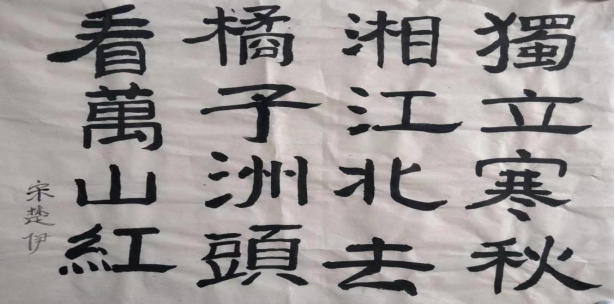 獨立寒秋
湘江北去
橘子洲頭
看萬山紅
宋楚伊